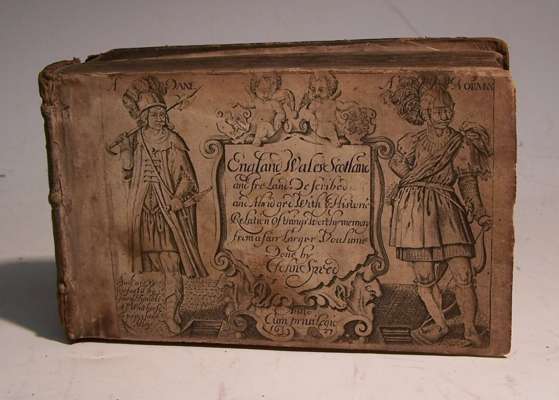 A DANE
A NORMAN
England Wales Scotland
and Ireland Described
and Abridged With ye Historic
Relation of things worthy memory
from a farr larger Voulume
Done by
John Speed
Anno
Cum privilegio
1627
And are to